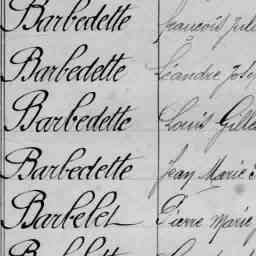 Barbedette François Jule
Barbedette Léandre Jose
Barbedette Louis Gille
Barbedette Jean Marie
Barbelet Pierre Marie